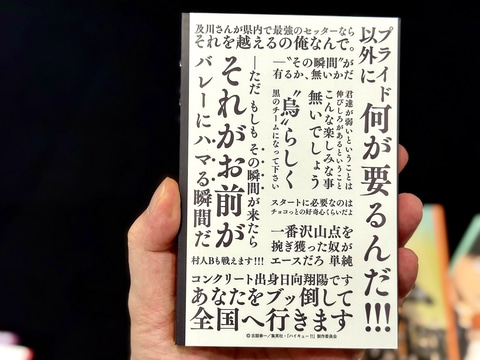 及川さんが県内で最強のセッターなら
それを越えるの俺なんで。
プライド
以外に
何が要るんだ!!!
―“その瞬間”が
有るか、無いかだ
君達が弱いということは
伸びしろがあるということ
こんな楽しみな事
無いでしょう
“烏”らしく
黒のチームになって下さい
―ただ もしも その瞬間が来たら
それがお前が
バレーにハマる瞬間だ
スタートに必要なのは
チョコっとの好奇心くらいだよ
一番沢山点を
捥ぎ獲った奴が
エースだろ 単純
村人Bも戦えます!!!
コンクリート出身日向翔陽です
あなたをブッ倒して
全国へ行きます
© 古舘春一／集英社・「ハイキュー!!」製作委員会